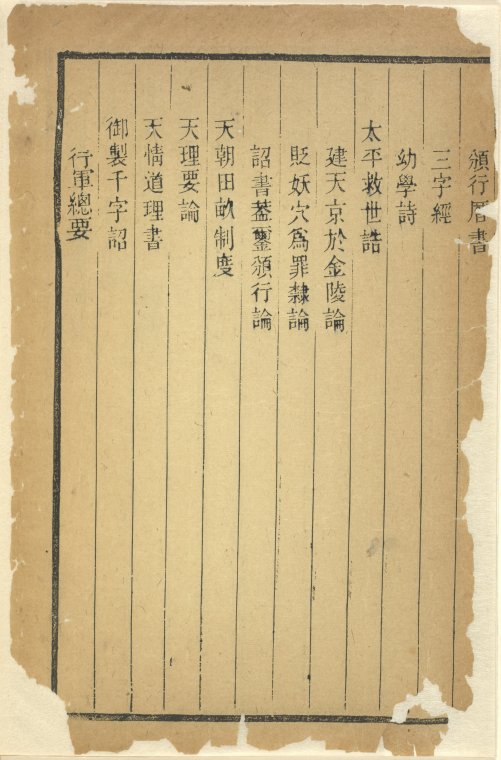 頒行曆書
三字經
幼學詩
太平救世誥
建天京於金陵論
貶妖穴為罪隸論
詔書蓋璽頒行論
天朝田畝制度
天理要論
天情道理書
御製千字詔
行軍總要